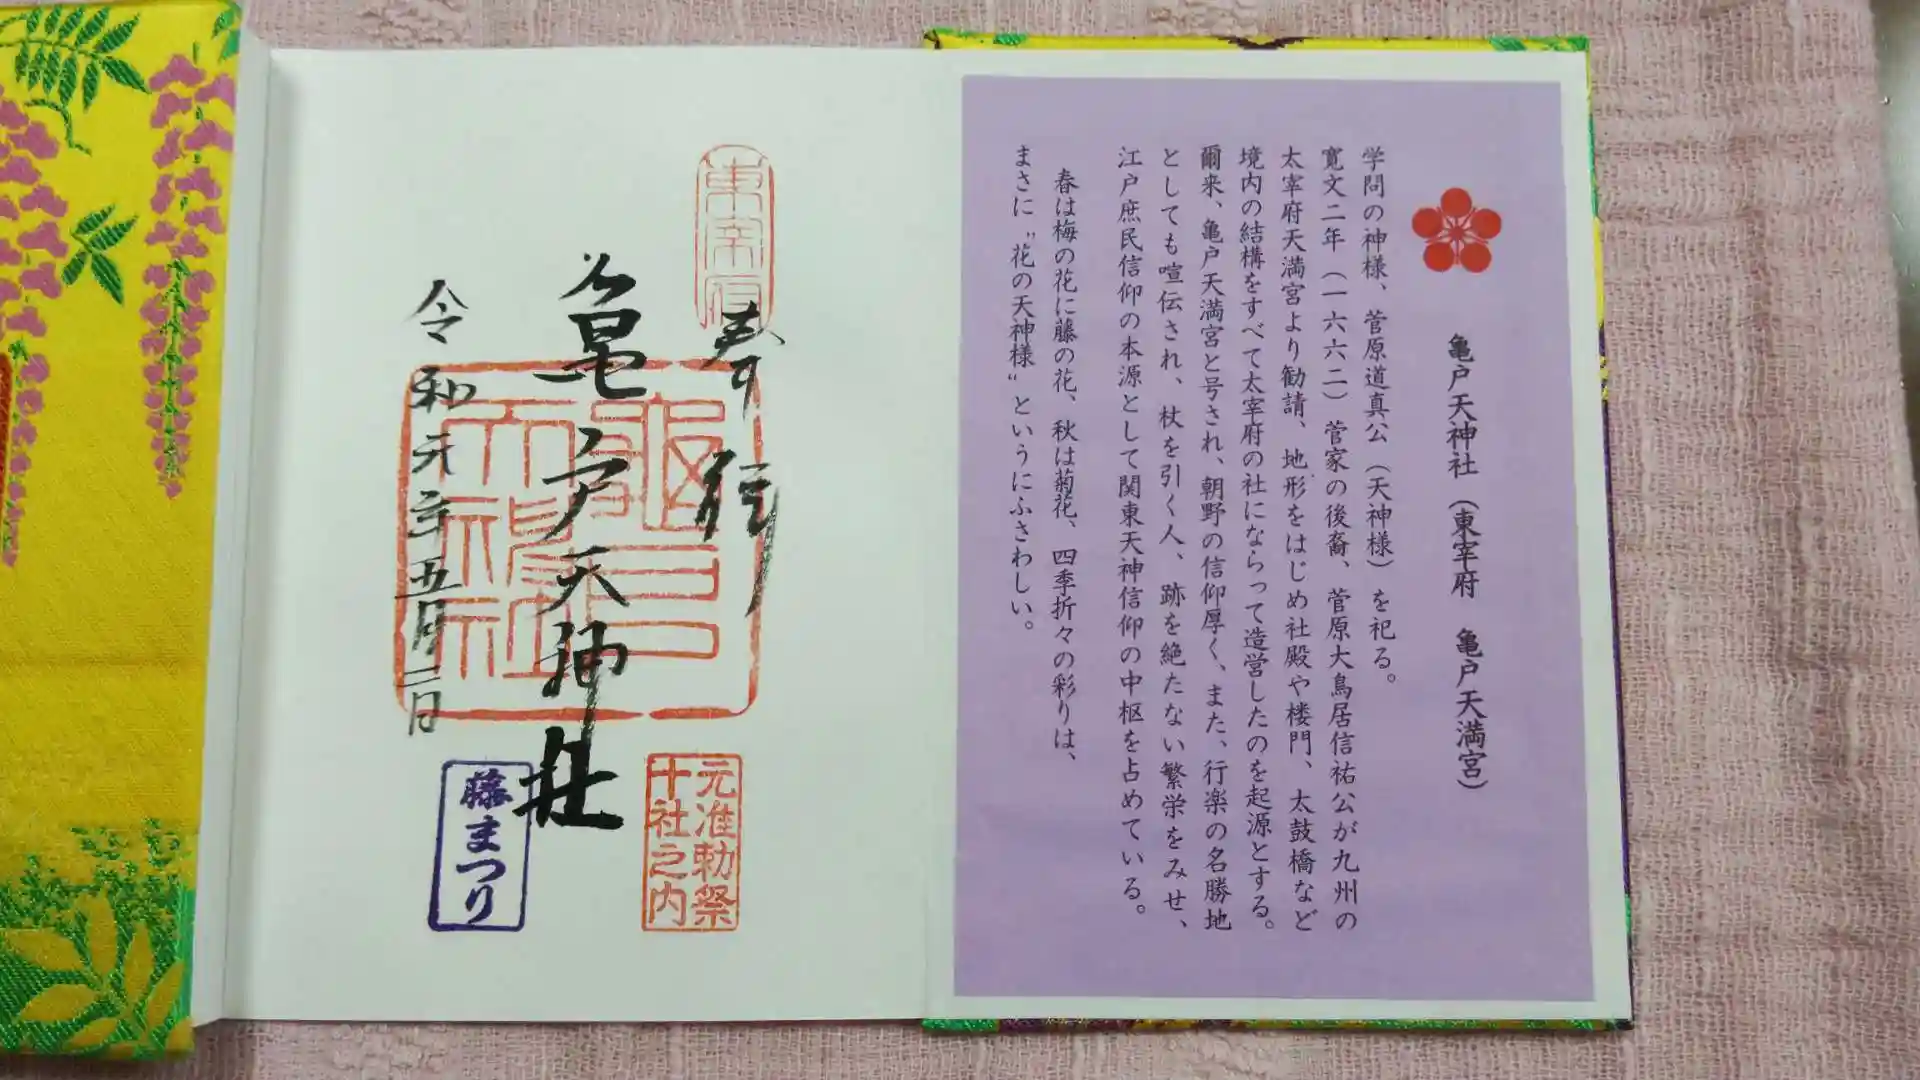 亀戸天神社（東宰府　亀戸天満宮）
学問の神様、菅原道真公（天神様）を祀る。
寛文二年（一六六二）菅家の後裔、菅原大鳥居信祐公が九州の
太宰府天満宮より勧請、地形をはじめ社殿や楼門、太鼓橋など
境内の結構をすべて太宰府の社にならって造営したのを起源とする。
爾来、亀戸天満宮と号され、朝野の信仰厚く、また、行楽の名勝地
としても喧伝され、杖を引く人、跡を絶たない繁栄をみせ、
江戸庶民信仰の本源として関東天神信仰の中枢を占めている。
春は梅の花に藤の花、秋は菊花、四季折々の彩りは、
まさに〝花の天神様〟というにふさわしい。
東宰府
奉拝
亀戸天神社
亀戸天神社印
元准勅祭
十社之内
令和元年五月二日
藤まつり